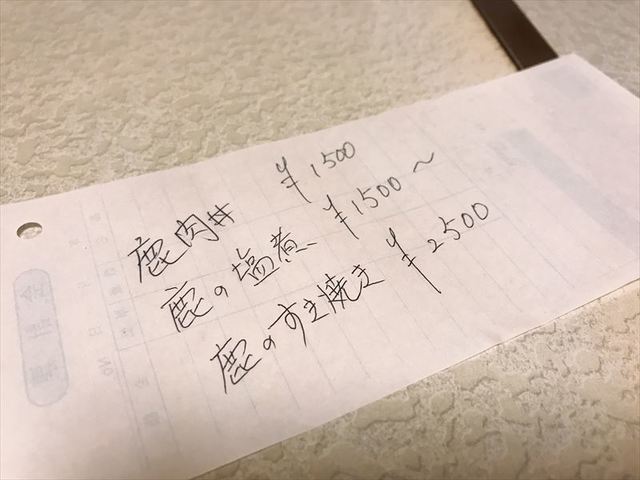 鹿肉丼 ¥1500
鹿の塩煮 ¥1500～
鹿のすき焼き ¥2500